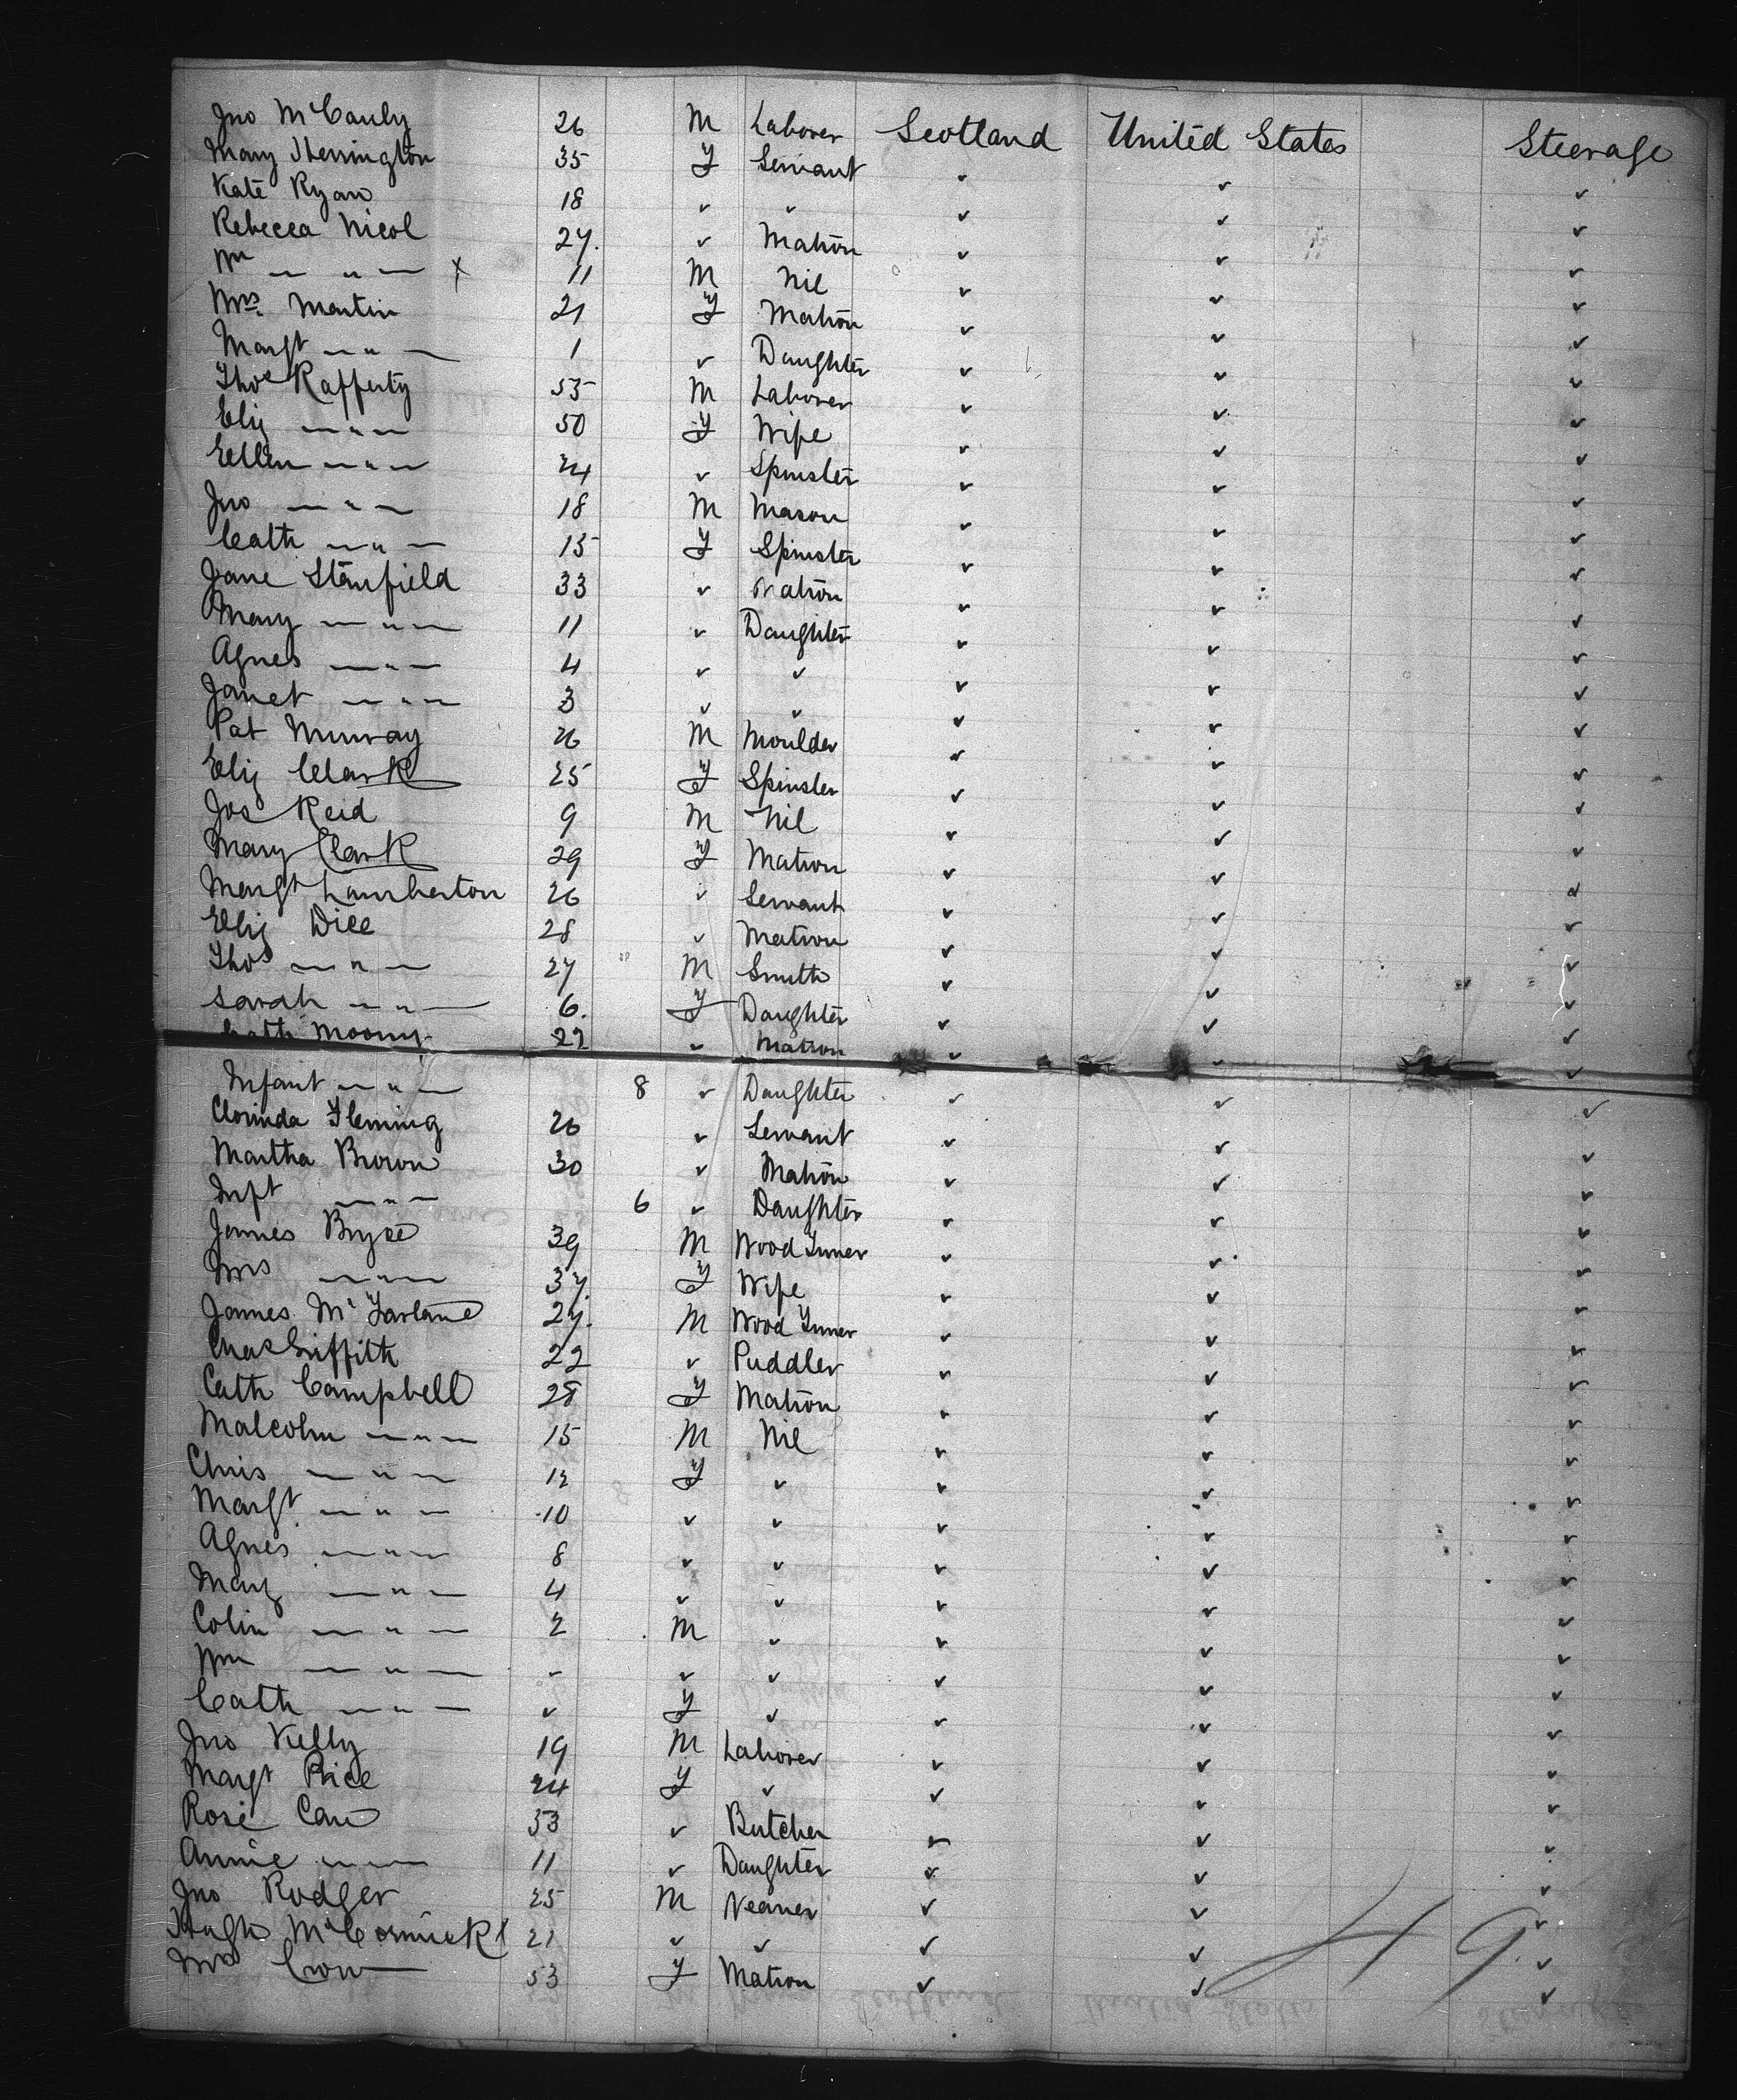 Jno McCauly 26 M Laborer Scotland United States Steerage
Mary Herrington 35 F Servant ✓ ✓ ✓
Kate Ryan 18 ✓ ✓ ✓ ✓ ✓
Rebecca Nicol 27. ✓ Matron ✓ ✓ ✓
Wm — " — x 11 M Nil ✓ ✓ ✓
Mrs. Martin 21 F Matron ✓ ✓ ✓
Margt — " — 1 ✓ Daughter ✓ ✓ ✓
Thos Rafferty 55 M Laborer ✓ ✓ ✓
Eliz — " — 50 F Wife ✓ ✓ ✓
Ellen — " — 24 ✓ Spinster ✓ ✓ ✓
Jno — " — 18 M Mason ✓ ✓ ✓
Cath — " — 15 F Spinster ✓ ✓ ✓
Jane Stanfield 33 ✓ Matron ✓ ✓ ✓
Mary — " — 11 ✓ Daughter ✓ ✓ ✓
Agnes — " — 4 ✓ ✓ ✓ ✓ ✓
Janet — " — 3 ✓ ✓ ✓ ✓ ✓
Pat Murray 26 M Moulder ✓ ✓ ✓
Eliz Clark 25 F Spinster ✓ ✓ ✓
Jos Reid 9 M Nil ✓ ✓ ✓
Mary Clark 29 F Matron ✓ ✓ ✓
Margt Lamberton 26 ✓ Servant ✓ ✓ ✓
Eliz Dice 28 ✓ Matron ✓ ✓ ✓
Thos — " — 27 M Smith ✓ ✓ ✓
Sarah — " — 6. F Daughter ✓ ✓ ✓
Cath Moony 22 ✓ Matron ✓ ✓ ✓
Infant — " — 8 ✓ Daughter ✓ ✓ ✓
Clorinda Fleming 26 ✓ Servant ✓ ✓ ✓
Martha Brown 30 ✓ Matron ✓ ✓ ✓
Inft — " — 6 ✓ Daughter ✓ ✓ ✓
James Bryce 39 M Wood Turner ✓ ✓ ✓
Mrs — " — 37. F Wife ✓ ✓ ✓
James McFarlane 27. M Wood Turner ✓ ✓ ✓
Chas Griffith 22 ✓ Puddler ✓ ✓ ✓
Cath Campbell 28 F Matron ✓ ✓ ✓
Malcolm — " — 15 M Nil ✓ ✓ ✓
Chris — " — 12 F ✓ ✓ ✓ ✓
Margt — " — 10 ✓ ✓ ✓ ✓ ✓
Agnes — " — 8 ✓ ✓ ✓ ✓ ✓
Mary — " — 4 ✓ ✓ ✓ ✓ ✓
Colin — " — 2 M ✓ ✓ ✓ ✓
Wm — " — ✓ ✓ ✓ ✓ ✓ ✓
Cath — " — ✓ F ✓ ✓ ✓ ✓
Jno Kelly 19 M Laborer ✓ ✓ ✓
Margt Price 24 F ✓ ✓ ✓ ✓
Rose Carr 33 ✓ Butcher ✓ ✓ ✓
Annie — " — 11 ✓ Daughter ✓ ✓ ✓
Jno Rodger 25 M Weaver ✓ ✓ ✓
Hugh McCormick 21 ✓ ✓ ✓ ✓ ✓
Mrs Crow 53 F Matron ✓ ✓ ✓
49